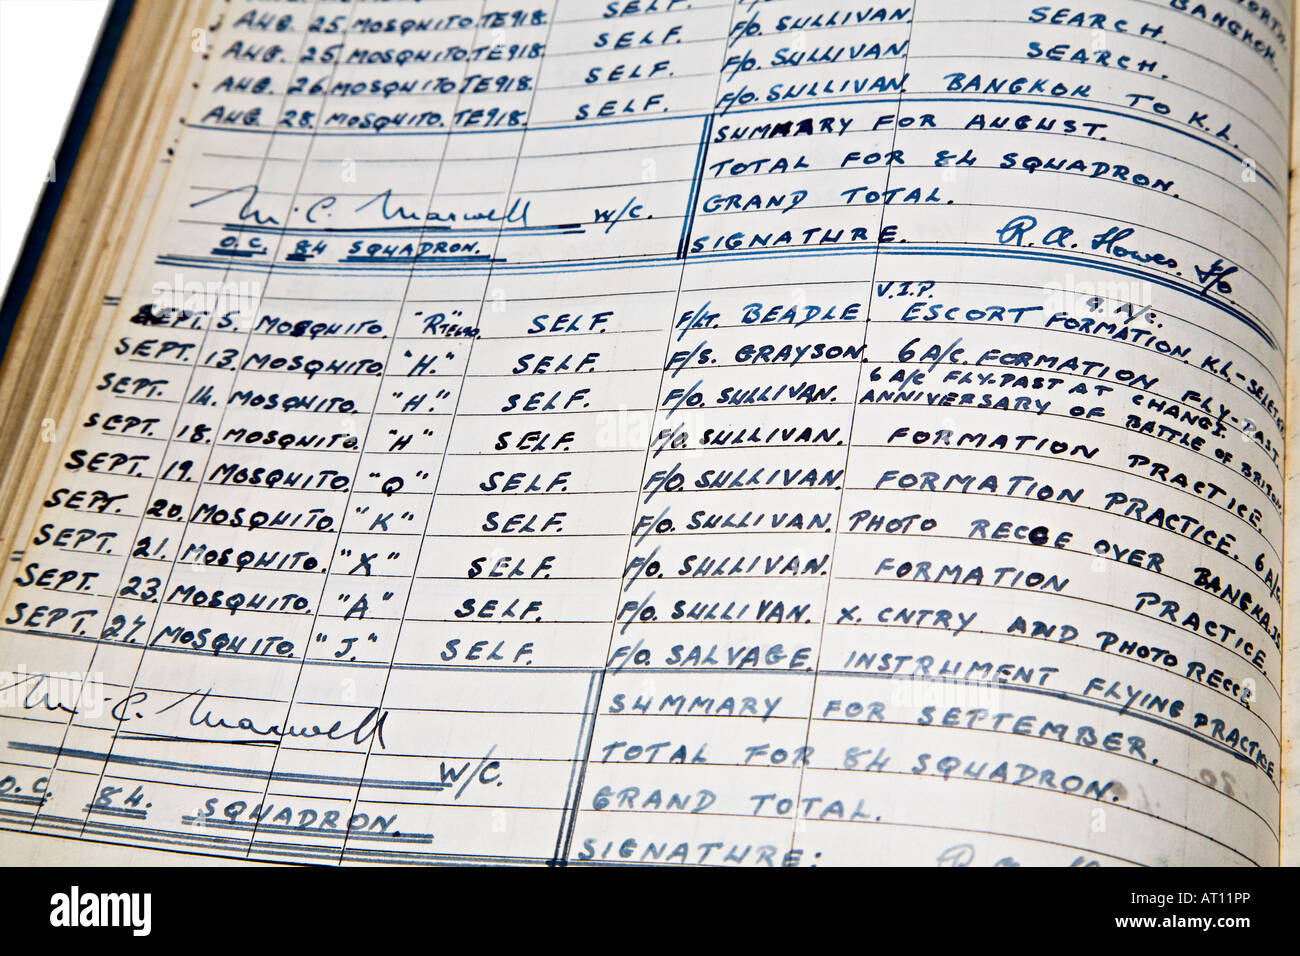 AUG. 25. MOSQUITO. TE918. SELF. F/O. SULLIVAN. SEARCH. BANGKOK.
AUG. 25. MOSQUITO. TE918. SELF. F/O. SULLIVAN. SEARCH.
AUG. 26. MOSQUITO. TE918. SELF. F/O. SULLIVAN.
AUG. 28. MOSQUITO. TE918. SELF. F/O. SULLIVAN. BANGKOK TO K.L.
SUMMARY FOR AUGUST.
TOTAL FOR 84 SQUADRON.
M. C. Maxwell W/C. GRAND TOTAL.
O.C. 84 SQUADRON. SIGNATURE. R. A. Howes. F/O.
SEPT. 5. MOSQUITO. "R" SELF. F/LT. BEADLE. V.I.P. ESCORT 9. A/C. FORMATION. KL-SELETAR
SEPT. 13. MOSQUITO. "H." SELF. F/S. GRAYSON. 6 A/C. FORMATION FLY-PAST.
SEPT. 14. MOSQUITO. "H." SELF. F/O. SULLIVAN. 6 A/C FLY-PAST AT CHANGI. ANNIVERSARY OF BATTLE OF BRITON.
SEPT. 18. MOSQUITO "H" SELF. F/O. SULLIVAN. FORMATION PRACTICE.
SEPT. 19. MOSQUITO. "Q" SELF. F/O. SULLIVAN. FORMATION PRACTICE. 6 A/C.
SEPT. 20. MOSQUITO. "K" SELF. F/O. SULLIVAN. PHOTO RECCE OVER BANGKA. IS
SEPT. 21. MOSQUITO. "X" SELF. F/O. SULLIVAN. FORMATION PRACTICE.
SEPT. 23. MOSQUITO. "A" SELF. F/O. SULLIVAN. X. CNTRY AND PHOTO RECCE
SEPT. 27. MOSQUITO. "J." SELF. F/O. SALVAGE. INSTRUMENT FLYING PRACTICE
SUMMARY FOR SEPTEMBER.
M. C. Maxwell W/C. TOTAL FOR 84 SQUADRON.
O.C. 84. SQUADRON. GRAND TOTAL.
SIGNATURE: